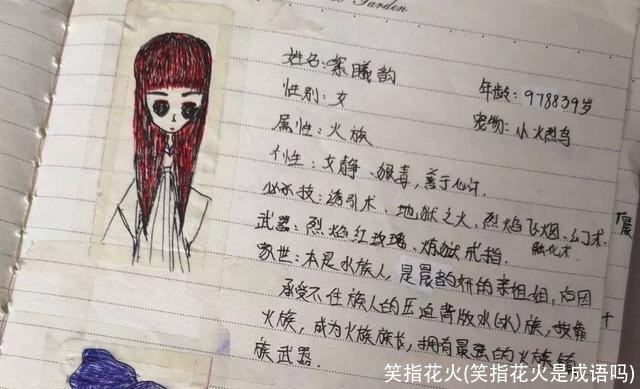 Garden
姓名:奈曦韵
年龄:978839岁
性别:女
宠物:小火烈鸟
属性:火族
个性:文静、狠毒,善于心计.
必杀技:诱引术、地狱之火、烈焰飞烟、幻术.
融化术
武器:烈焰红玫瑰、炼狱戒指.
家世:本是水族人,是晨韵妍的亲姐姐,后因
承受不住族人的压迫背叛水(冰)族,投靠
火族,成为火族族长,拥有最强的火族
族武器.
笑指花火(笑指花火是成语吗)